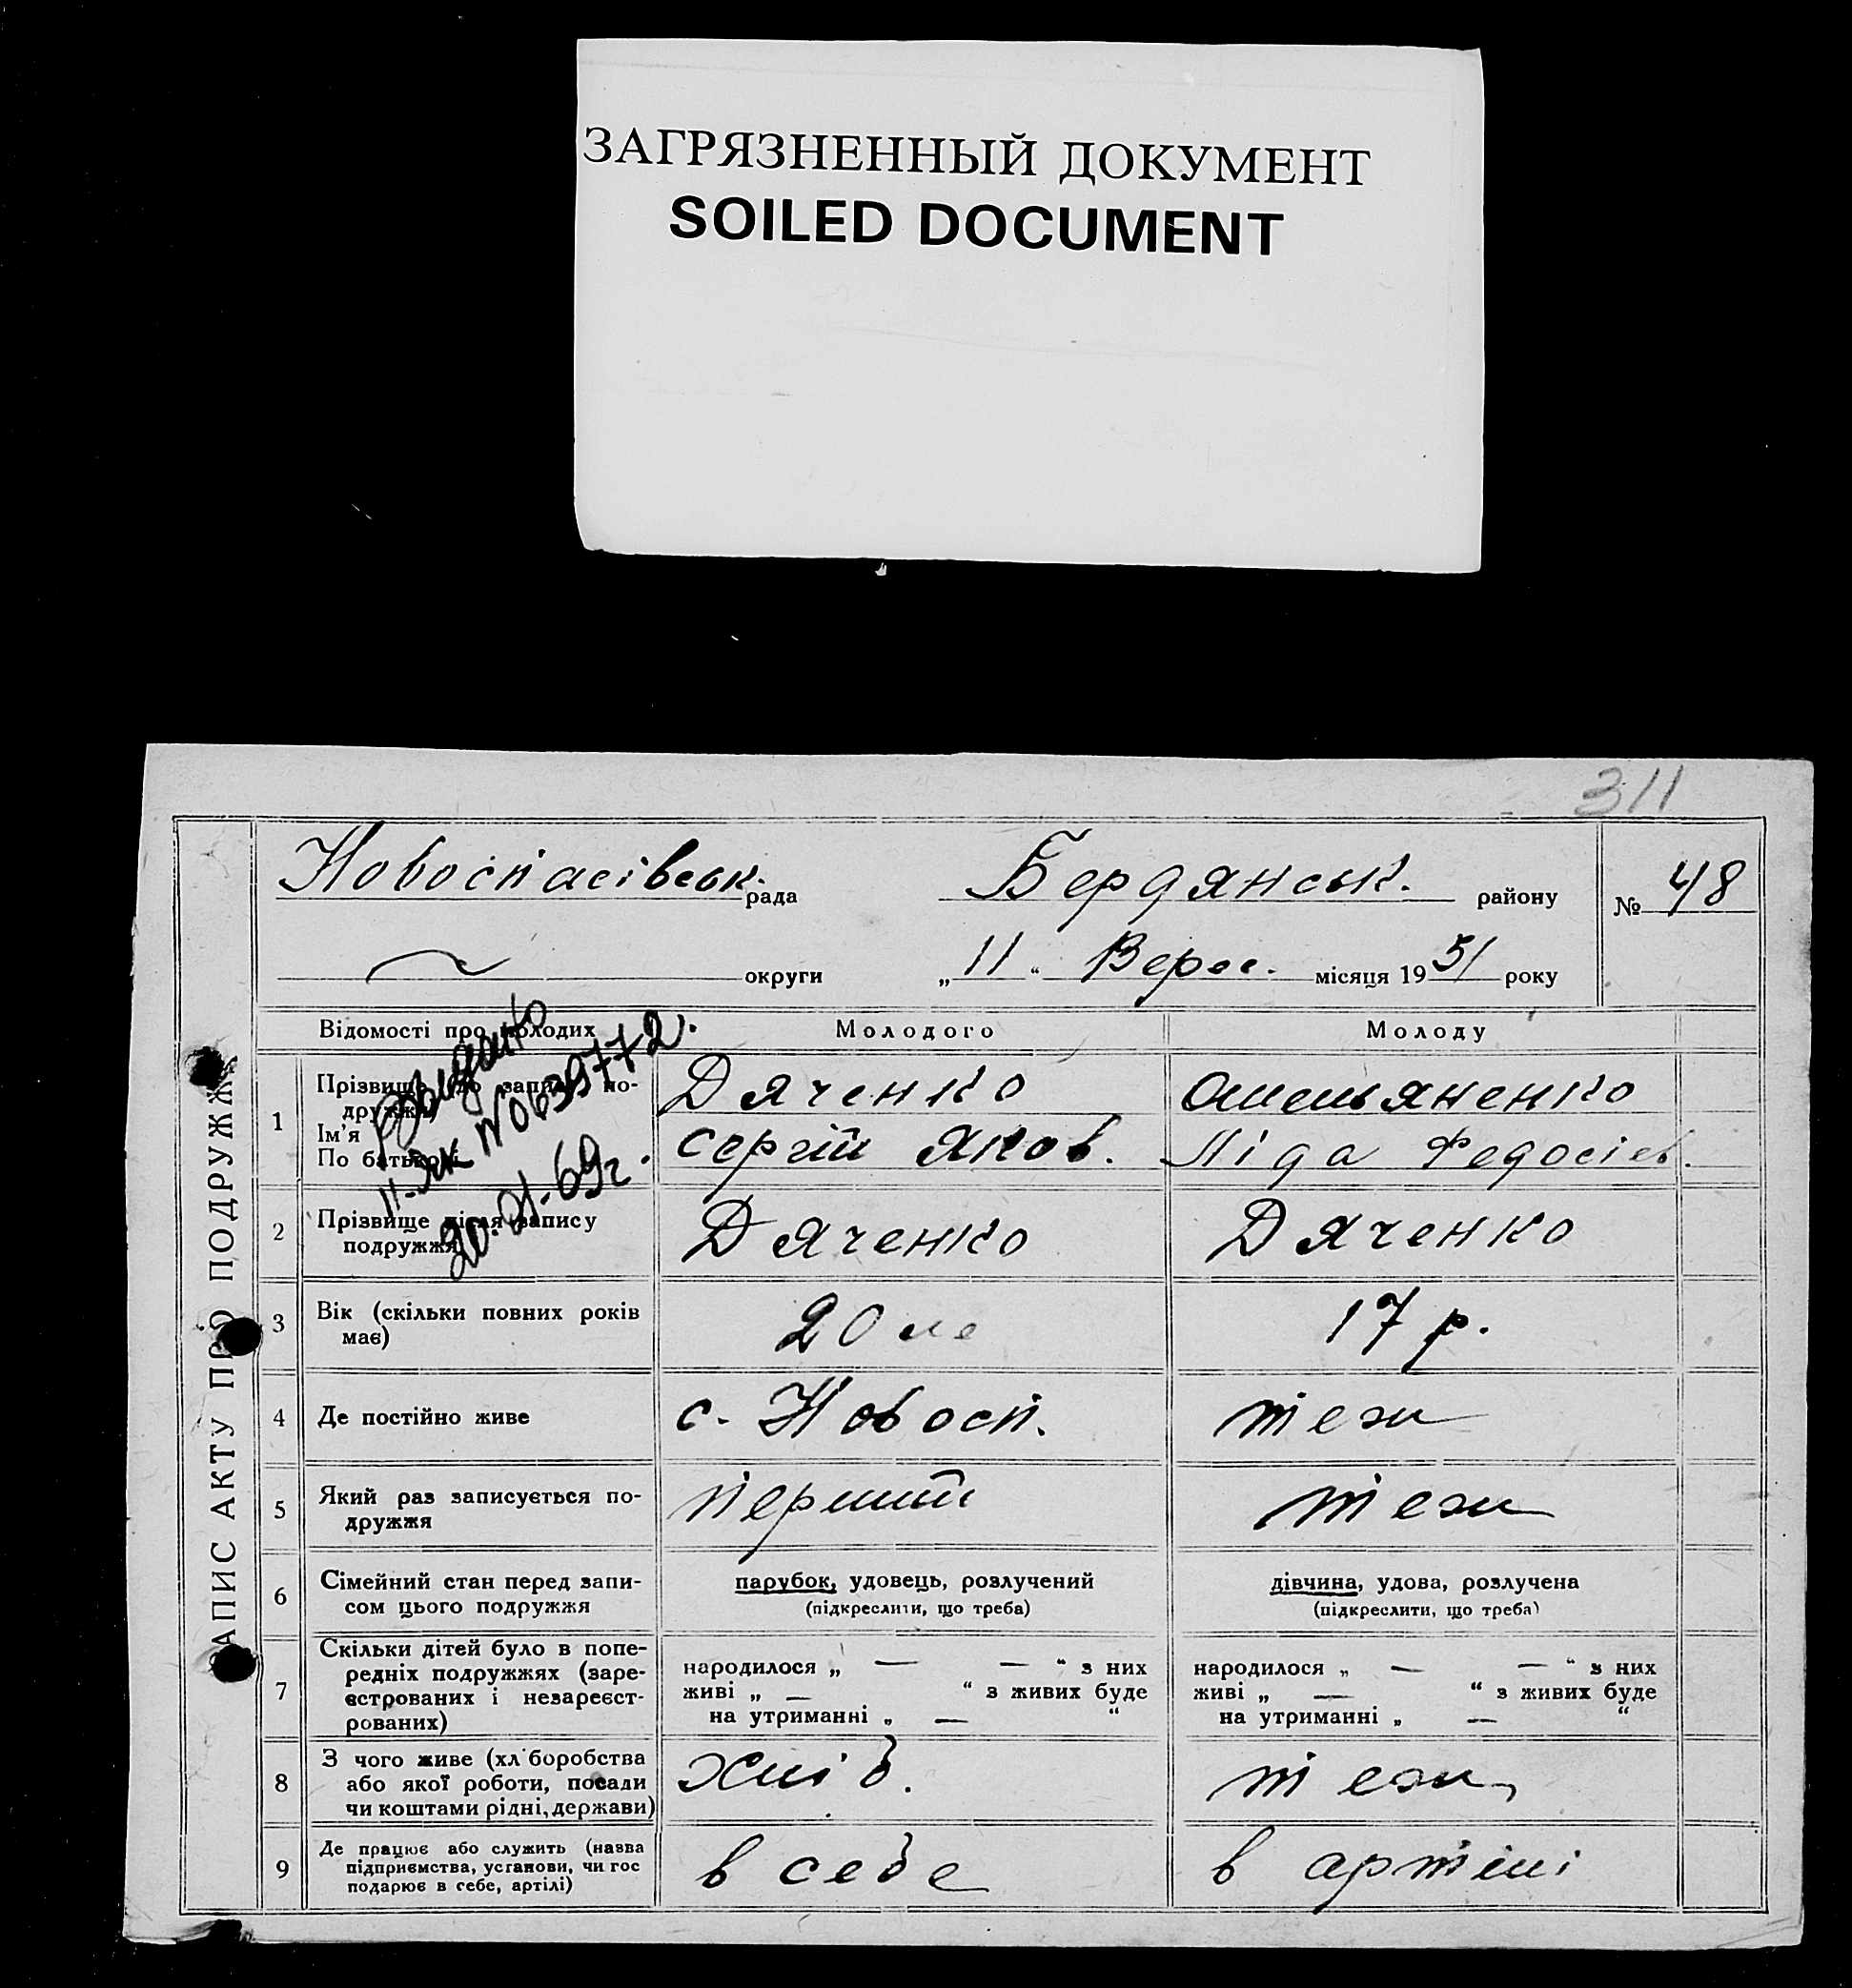 ЗАГРЯЗНЕННЫЙ ДОКУМЕНТ
SOILED DOCUMENT
311
Новоспасівськ. рада Бердянськ. району № 48
округи „11“ Верес. місяця 1931 року
ЗАПИС АКТУ ПРО ПОДРУЖЖЯ
Відомості про молодих Молодого Молоду
Видано
II-ЯК №0639772.
20.01-69г.
1 Прізвище до запису по-
дружжя Дяченко Омельяненко
Ім'я
По батькові Сергій Яков. Ліда Федосієв.
2 Прізвище після запису
подружжя Дяченко Дяченко
3 Вік (скільки повних років
має) 20 лє 17 р.
4 Де постійно живе с. Новосп. теж
5 Який раз записується по-
дружжя перший теж
6 Сімейний стан перед запи-
сом цього подружжя
парубок, удовець, розлучений
(підкреслити, що треба)
дівчина, удова, розлучена
(підкреслити, що треба)
7 Скільки дітей було в попе-
редніх подружжях (заре-
єстрованих і незареєст-
рованих)
народилося „ — — “ з них
живі „ — “ з живих буде
на утриманні „ — “
народилося „ — — “ з них
живі „ — “ з живих буде
на утриманні „ — “
8 З чого живе (хл боробства
або якої роботи, посади
чи коштами рідні, держави) хліб. теж
9 Де працює або служить (назва
підприємства, установи, чи гос
подарює в себе, артілі) в себе в артілі